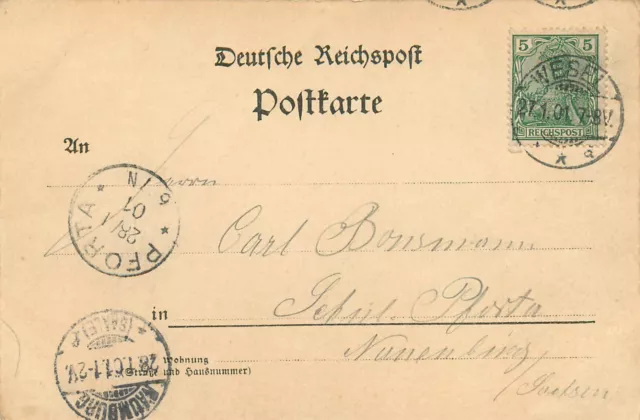 Deutsche Reichspost
Postkarte
5 5
REICHSPOST
WESEL
27.1.01. 7-8V.
* a
An
Herrn
PFORTA
28/1
01
6/7 N
*
Carl Bonsmann
in
Schul-Pforta
Wohnung
(Straße und Hausnummer)
Naumburg
/Sachsen
NAUMBURG
28.1.01.1-2V.
* (SAALE) *